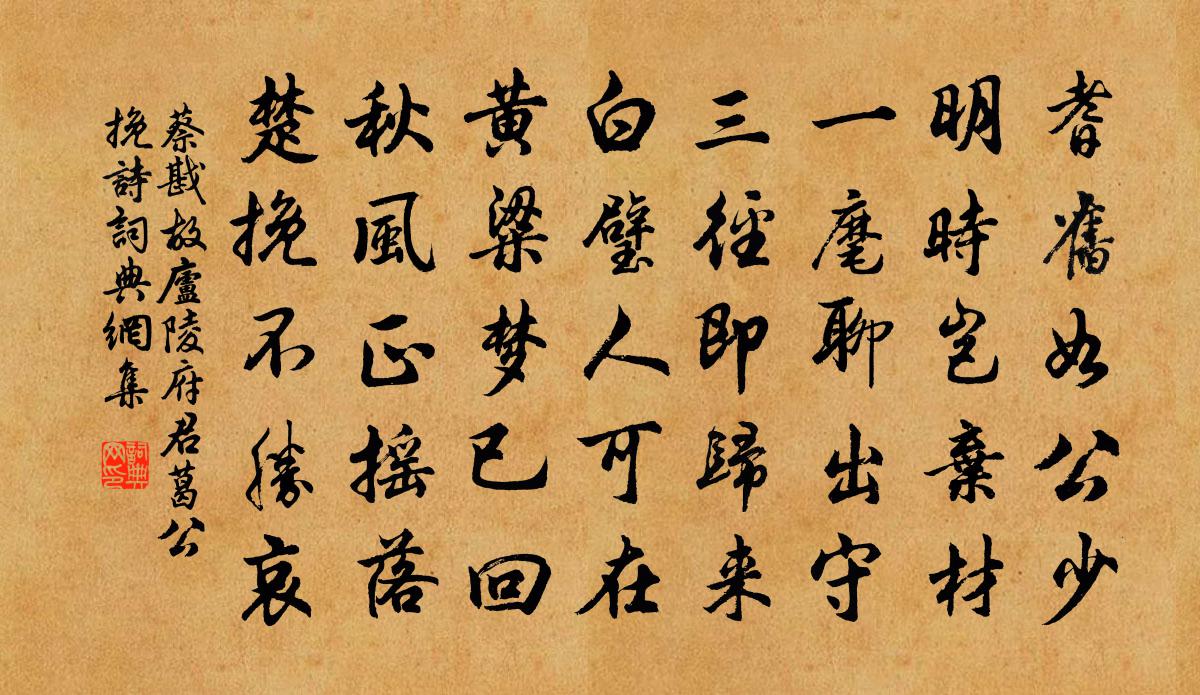 耆舊如公少
明時豈棄材
一麾聊出守
三徑即歸来
白璧人可在
黄粱梦已回
秋風正摇落
楚挽不勝哀
蔡戡故廬陵府君葛公
挽詩詞典網集
詞典